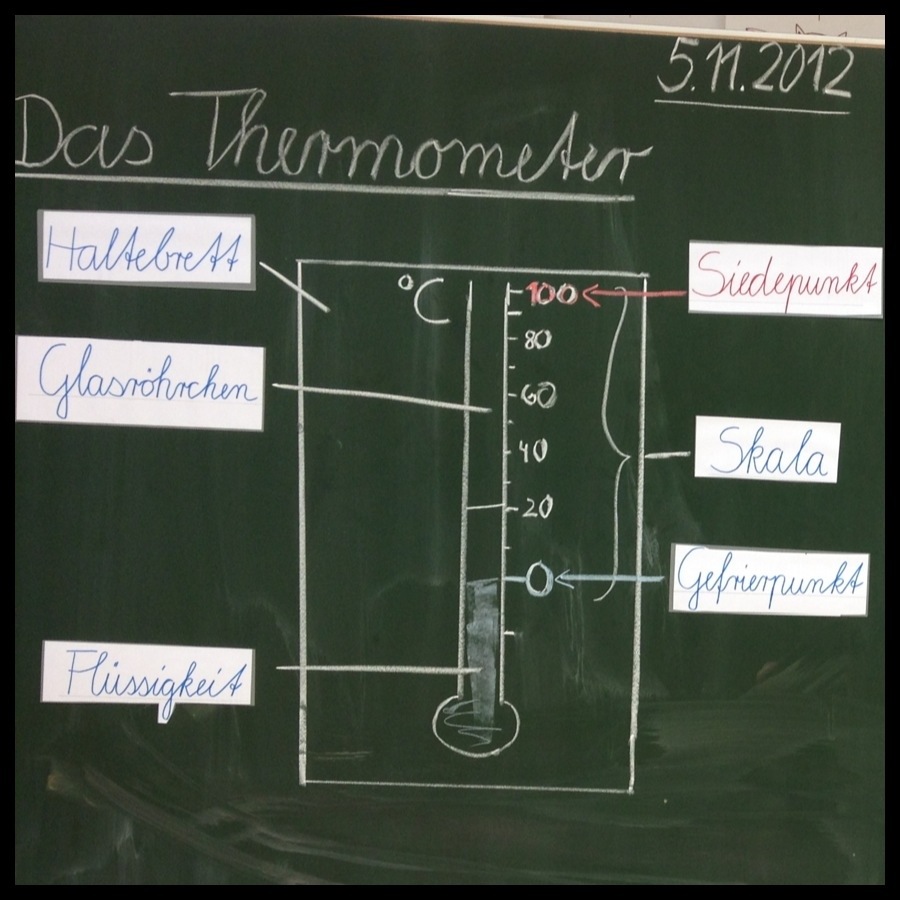 5.11.2012
Das Thermometer
Haltebrett
Siedepunkt
°C
100
80
Glasröhrchen
60
40
Skala
20
0
Gefrierpunkt
Flüssigkeit